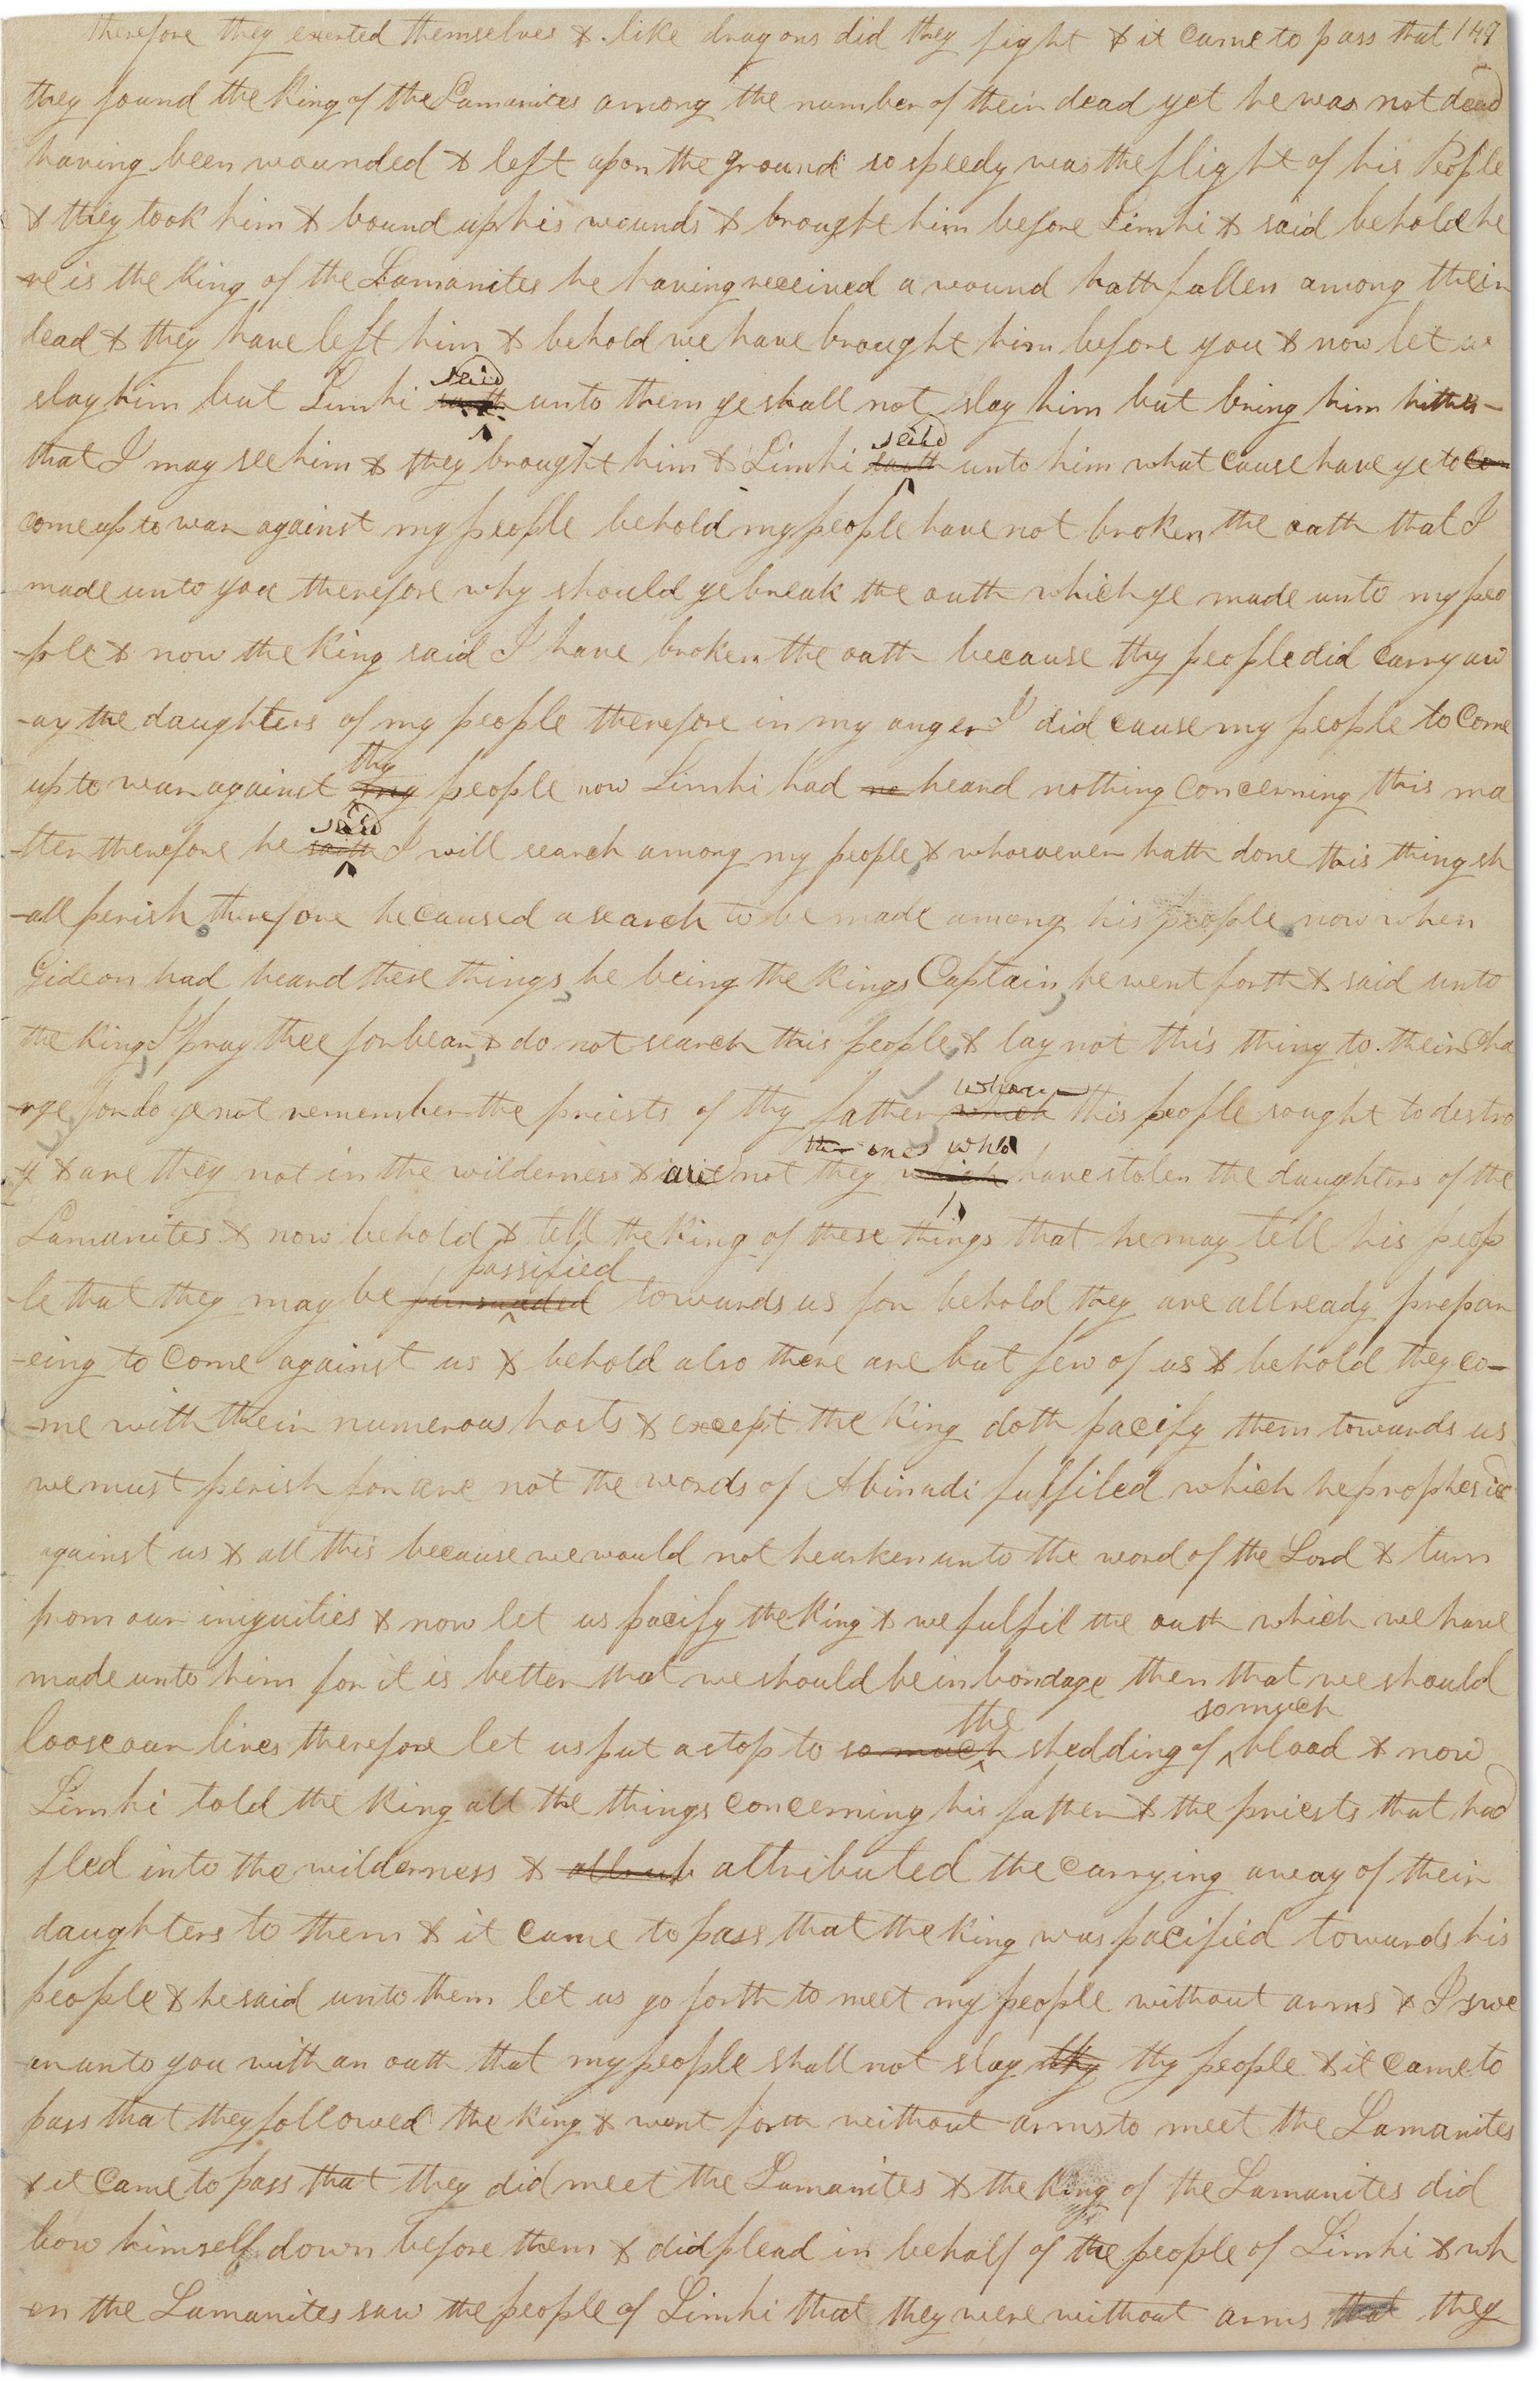 therefore they exerted themselves & like dragons did they fight & it came to pass that 149
they found the King of the Lamanites among the number of their dead yet he was not dead
having been wounded & left upon the ground so speedy was the flight of his People
& they took him & bound up his wounds & brought him before Limhi & said behold he
-re is the King of the Lamanites he having received a wound hath fallen among their
dead & they have left him & behold we have brought him before you & now let us
said
slay him but Limhi saith unto them ye shall not slay him but bring him hither
said
that I may see him & they brought him & Limhi saith unto him what cause have ye to com
come up to war against my people behold my people have not broken the oath that I
made unto you therefore why should ye break the oath which ye made unto my peo
-ple & now the King said I have broken the oath because thy people did carry aw
-ay the daughters of my people therefore in my anger I did cause my people to come
thy
up to war against my people now Limhi had no heard nothing concerning this ma
said
-tter therefore he saith I will search among my people & whosoever hath done this thing sh
-all perish, therefore he caused a search to be made among his people, now when
Gideon had heard these things, he being the Kings Captain, he went forth & said unto
the King, I pray thee forbear, & do not search this people, & lay not this thing to their cha
whom
-rge, for do ye not remember the priests of thy father which this people sought to destro
the ones who
-y & are they not in the wilderness & are not they which have stolen the daughters of the
Lamanites & now behold & tell the King of these things that he may tell his peop
passified
-le that they may be persuaded towards us for behold they are allready prepar
-eing to come against us & behold also there are but few of us & behold they co-
-me with their numerous hosts & except the King doth pacify them towards us
we must perish for are not the words of Abinadi fulfiled which he prophesied
against us & all this because we would not hearken unto the word of the Lord & turn
from our iniquities & now let us pacify the King & we fulfil the oath which we have
made unto him for it is better that we should be in bondage then that we should
the so much
loose our lives therefore let us put a stop to so much shedding of blood & now
Limhi told the King all the things concerning his father & the priests that had
fled into the wilderness & attributed the carrying away of their
daughters to them & it came to pass that the King was pacified towards his
people & he said unto them let us go forth to meet my people without arms & I swe
-ar unto you with an oath that my people shall not slay thy thy people & it came to
pass that they followed the King & went forth without arms to meet the Lamanites
& it came to pass that they did meet the Lamanites & the King of the Lamanites did
bow himself down before them & did plead in behalf of the people of Limhi & wh
-en the Lamanites saw the people of Limhi that they were without arms that they